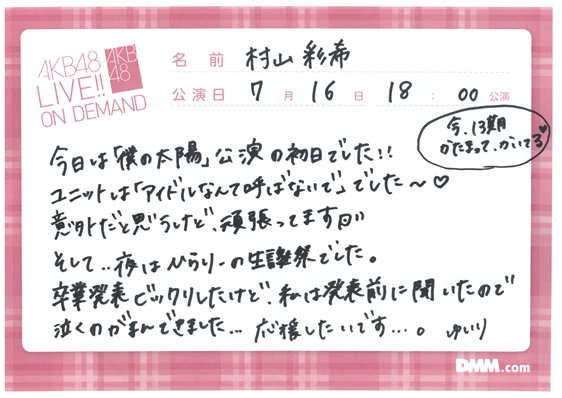 AKB48
LIVE!!
ON DEMAND
AKB
48
名前 村山彩希
公演日 7月16日 18:00公演
今、13期
かたまって、かいてる♥
今日は「僕の太陽」公演の初日でした!!
ユニットは「アイドルなんて呼ばないで」でした〜♡
意外だと思うけど、頑張ってます
そして..夜はひらりーの生誕祭でした。
卒業発表ビックリしたけど、私は発表前に聞いたので
泣くのがまんできました... 応援したいです...。 ゆいり
DMM.com